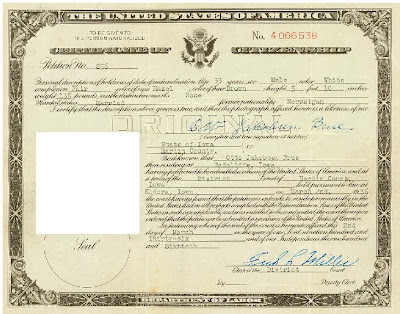 THE UNITED STATES OF AMERICA
TO BE GIVEN TO
THE PERSON NATURALIZED
No. 4066536
CERTIFICATE OF CITIZENSHIP
Petition No. 205
Personal description of holder as of date of naturalization: Age 33 years, sex Male color White
complexion Fair color of eyes Hazel color of hair Brown height 5 feet 10 inches
weight 135 pounds, visible distinctive marks None
Marital status Married former nationality Norwegian
I certify that the description above given is true, and that the photograph affixed hereto is a likeness of me.
ORIGINAL
Otto Jakobsen Brue
(Complete and true signature of holder)
State of Iowa
Hardin County
Be it known that Otto Jakobsen Brue
then residing at Iowa
having petitioned to be admitted a citizen of the United States of America, and at
a term of the District Court of Hardin County,
Iowa held pursuant to law at
Eldora, Iowa on March 2nd, 1936
the court having found that the petitioner intends to reside permanently in the
United States
and that the petitioner be admitted as a citizen of the United States of America.
In testimony whereof the seal of the court is hereunto affixed this 2nd
day of March in the year of our Lord nineteen hundred and
Thirty-six and of our Independence the one hundred
and Sixtieth
Seal
Clerk of the District Court
By Deputy Clerk
DEPARTMENT OF LABOR